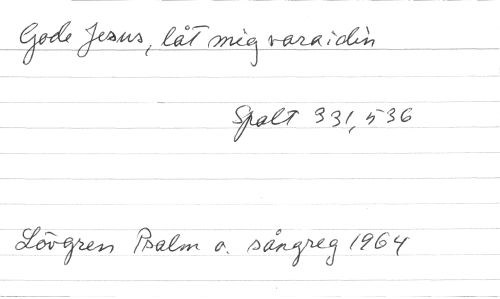 Gode Jesus, låt mig vara i din
Spalt 331, 536
Lövgren Psalm o. sångreg 1964